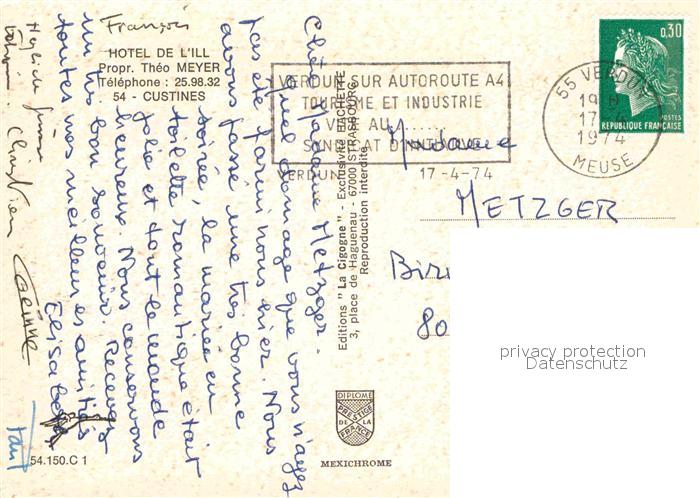 HOTEL DE L'ILL
Propr. Théo MEYER
Téléphone : 25.98.32
54 - CUSTINES
François
Chère Madame Metzger.
Quel dommage que vous n'ayez
pas été parmi nous hier. Nous
avons passé une très bonne
soirée, la mariée en
toilette romantique était
jolie et tout le monde
heureux. Nous conservons
un très bon souvenir. Recevez
toutes nos meilleures amitiés
Elisabeth
Christian
Corinne
54.150.C 1
Editions " La Cigogne " - Exclusivité HACHETTE
3, place de Haguenau - 67000 STRASBOURG
Reproduction interdite
DIPLOME
PRESTIGE
DE LA
FRANCE
MEXICHROME
VERDUN SUR AUTOROUTE A4
TOURISME ET INDUSTRIE
VERDUN
17-4-74
55 VERDUN
19 H
17-4
1974
MEUSE
0,30
POSTES
REPUBLIQUE FRANÇAISE
Madame
METZGER
Bir
80
privacy protection
Datenschutz